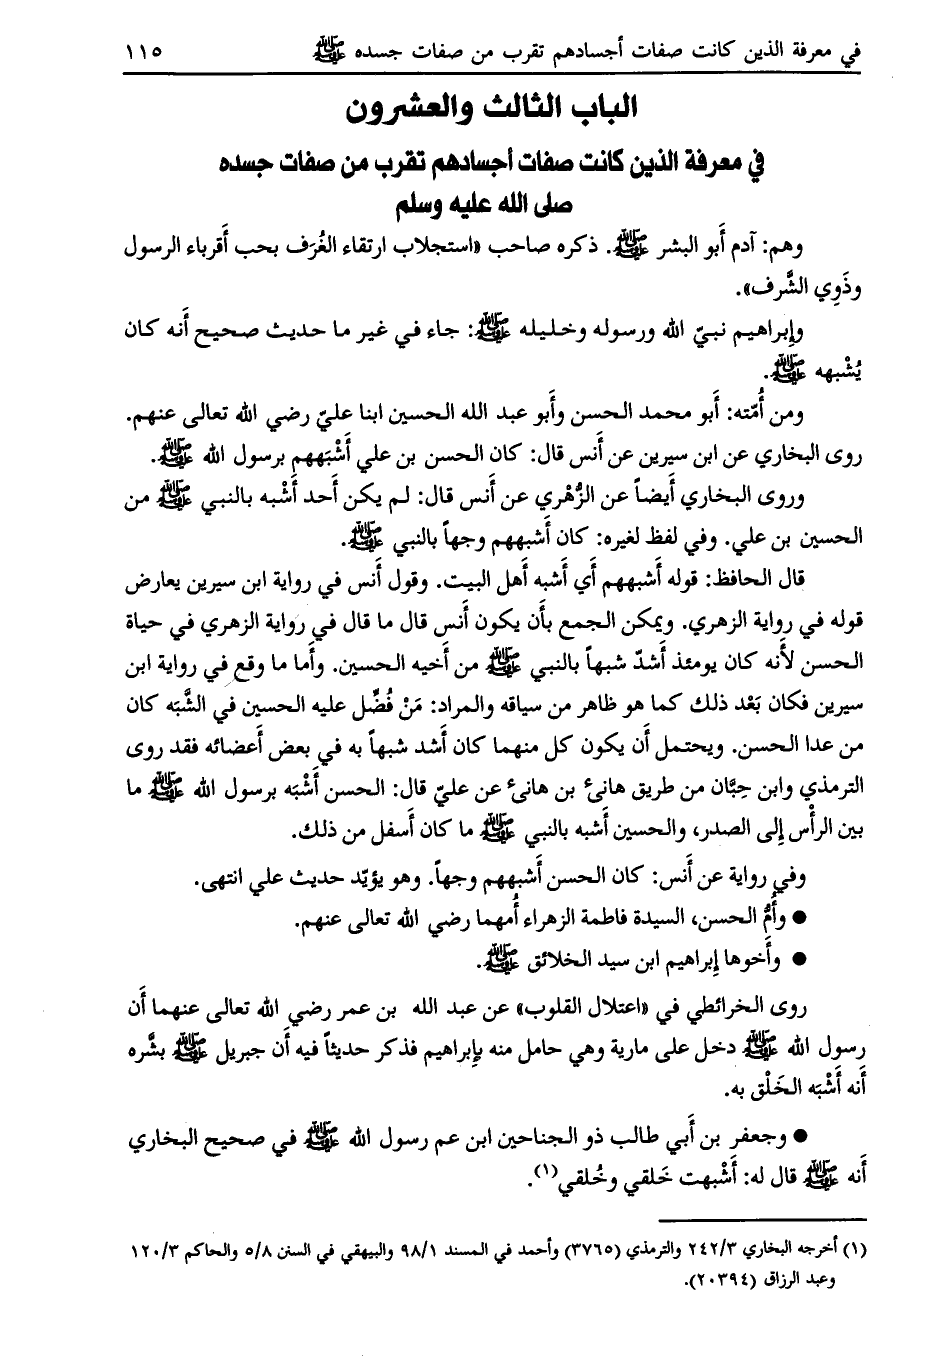 في معرفة الذين كانت صفات أجسادهم تقرب من صفات جسده ﷺ ١١٥
الباب الثالث والعشرون
في معرفة الذين كانت صفات أجسادهم تقرب من صفات جسده
صلى الله عليه وسلم
وهم: آدم أَبو البشر ﷺ. ذكره صاحب «استجلاب ارتقاء الغُرَف بحب أَقرباء الرسول
وذَوِي الشَّرف».
وإِبراهيم نبيّ الله ورسوله وخليله ﷺ: جاء في غير ما حديث صحيح أَنه كان
يُشْبهه ﷺ.
ومن أُمّته: أَبو محمد الحسن وأَبو عبد الله الحسين ابنا عليّ رضي الله تعالى عنهم.
روى البخاري عن ابن سيرين عن أَنس قال: كان الحسن بن علي أَشْبَههم برسول الله ﷺ.
وروى البخاري أَيضاً عن الزُّهْري عن أَنس قال: لم يكن أَحد أَشْبه بالنبي ﷺ من
الحسين بن علي. وفي لفظ لغيره: كان أَشبههم وجهاً بالنبي ﷺ.
قال الحافظ: قوله أَشبههم أَي أَشبه أَهل البيت. وقول أَنس في رواية ابن سيرين يعارض
قوله في رواية الزهري. ويمكن الجمع بأَن يكون أَنس قال ما قال في رواية الزهري في حياة
الحسن لأَنه كان يومئذ أَشدّ شبهاً بالنبي ﷺ من أَخيه الحسين. وأَما ما وقع في رواية ابن
سيرين فكان بَعْد ذلك كما هو ظاهر من سياقه والمراد: مَنْ فُضِّل عليه الحسين في الشَّبَه كان
من عدا الحسن. ويحتمل أَن يكون كل منهما كان أَشد شبهاً به في بعض أَعضائه فقد روى
الترمذي وابن حِبَّان من طريق هانئ بن هانئ عن عليّ قال: الحسن أَشْبَه برسول الله ﷺ ما
بين الرأْس إِلى الصدر، والحسين أَشبه بالنبي ﷺ ما كان أَسفل من ذلك.
وفي رواية عن أَنس: كان الحسن أَشبههم وجهاً. وهو يؤيّد حديث علي انتهى.
● وأُمُّ الحسن، السيدة فاطمة الزهراء أُمهما رضي الله تعالى عنهم.
● وأَخوها إِبراهيم ابن سيد الخلائق ﷺ.
روى الخرائطي في «اعتلال القلوب» عن عبد الله بن عمر رضي الله تعالى عنهما أَن
رسول الله ﷺ دخل على مارية وهي حامل منه بإِبراهيم فذكر حديثاً فيه أَن جبريل ﷺ بشَّره
أَنه أَشْبَه الخَلْق به.
● وجعفر بن أَبي طالب ذو الجناحين ابن عم رسول الله ﷺ في صحيح البخاري
أَنه ﷺ قال له: أَشْبهت خَلقي وخُلقي(١).
(١) أخرجه البخاري ٢٤٢/٣ والترمذي (٣٧٦٥) وأحمد في المسند ٩٨/١ والبيهقي في السنن ٥/٨ والحاكم ١٢٠/٣
وعبد الرزاق (٢٠٣٩٤).